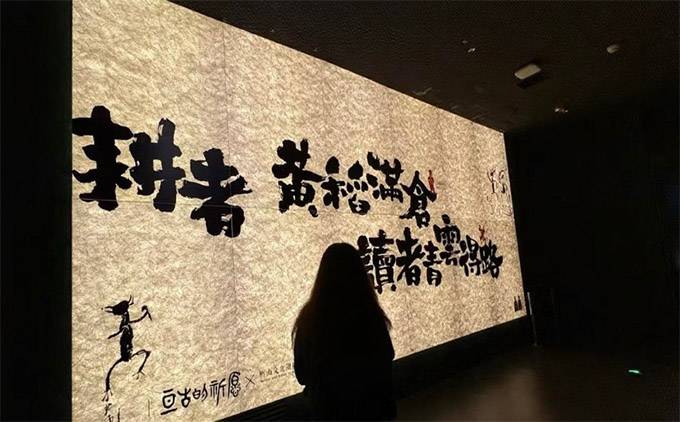 耕者 黃稻滿倉
讀者青雲得路
亘古的祈愿 ×